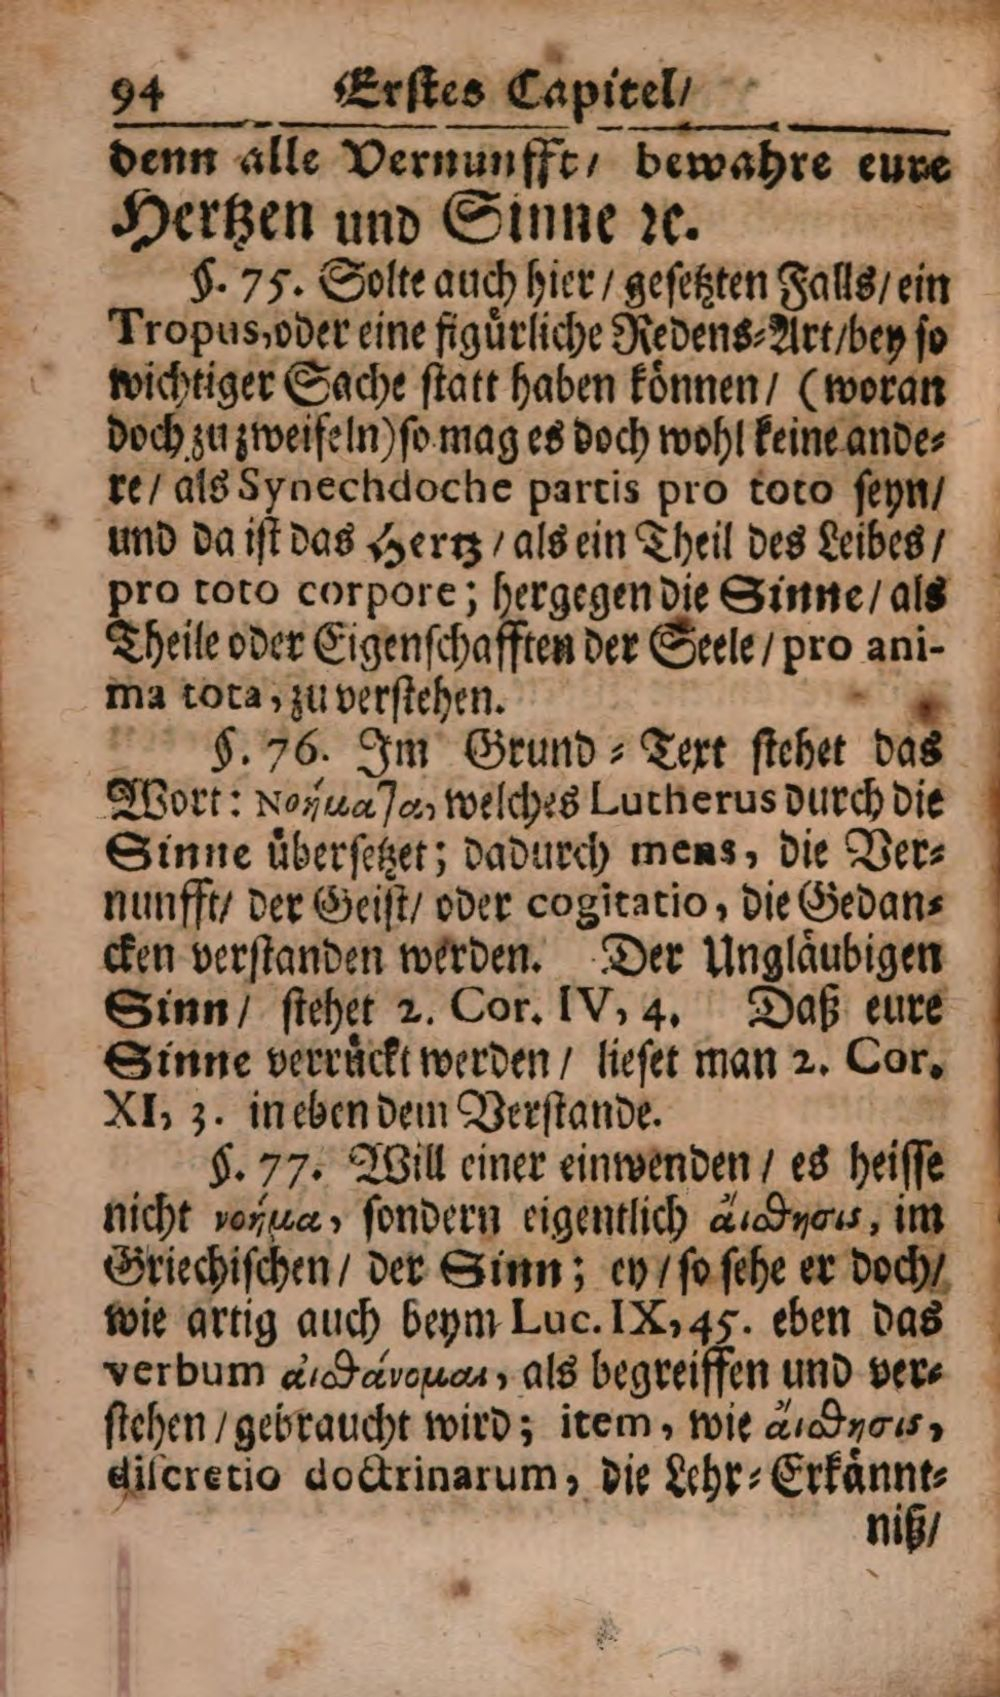 94 Erstes Capitel/
denn alle Vernunfft/ bewahre eure
Hertzen und Sinne ꝛc.
§. 75. Solte auch hier / gesetzten Falls/ ein
Tropus, oder eine figürliche Redens-Art/bey so
wichtiger Sache statt haben können/ (woran
doch zu zweifeln) so mag es doch wohl keine ande-
re/ als Synechdoche partis pro toto seyn/
und da ist das Hertz / als ein Theil des Leibes/
pro toto corpore; hergegen die Sinne/ als
Theile oder Eigenschafften der Seele / pro ani-
ma tota, zu verstehen.
§. 76. Im Grund-Text stehet das
Wort: Νοήματα, welches Lutherus durch die
Sinne übersetzet; dadurch mens, die Ver-
nunfft/ der Geist/ oder cogitatio, die Gedan-
cken verstanden werden. Der Ungläubigen
Sinn/ stehet 2. Cor. IV, 4. Daß eure
Sinne verrückt werden / lieset man 2. Cor.
XI, 3. in eben dem Verstande.
§. 77. Will einer einwenden / es heisse
nicht νοήμα, sondern eigentlich ἄισθησις, im
Griechischen/ der Sinn; ey / so sehe er doch/
wie artig auch beym Luc. IX, 45. eben das
verbum ἀισθάνομαι, als begreiffen und ver-
stehen / gebraucht wird; item, wie ἄισθησις,
discretio doctrinarum, die Lehr-Erkännt-
niß/